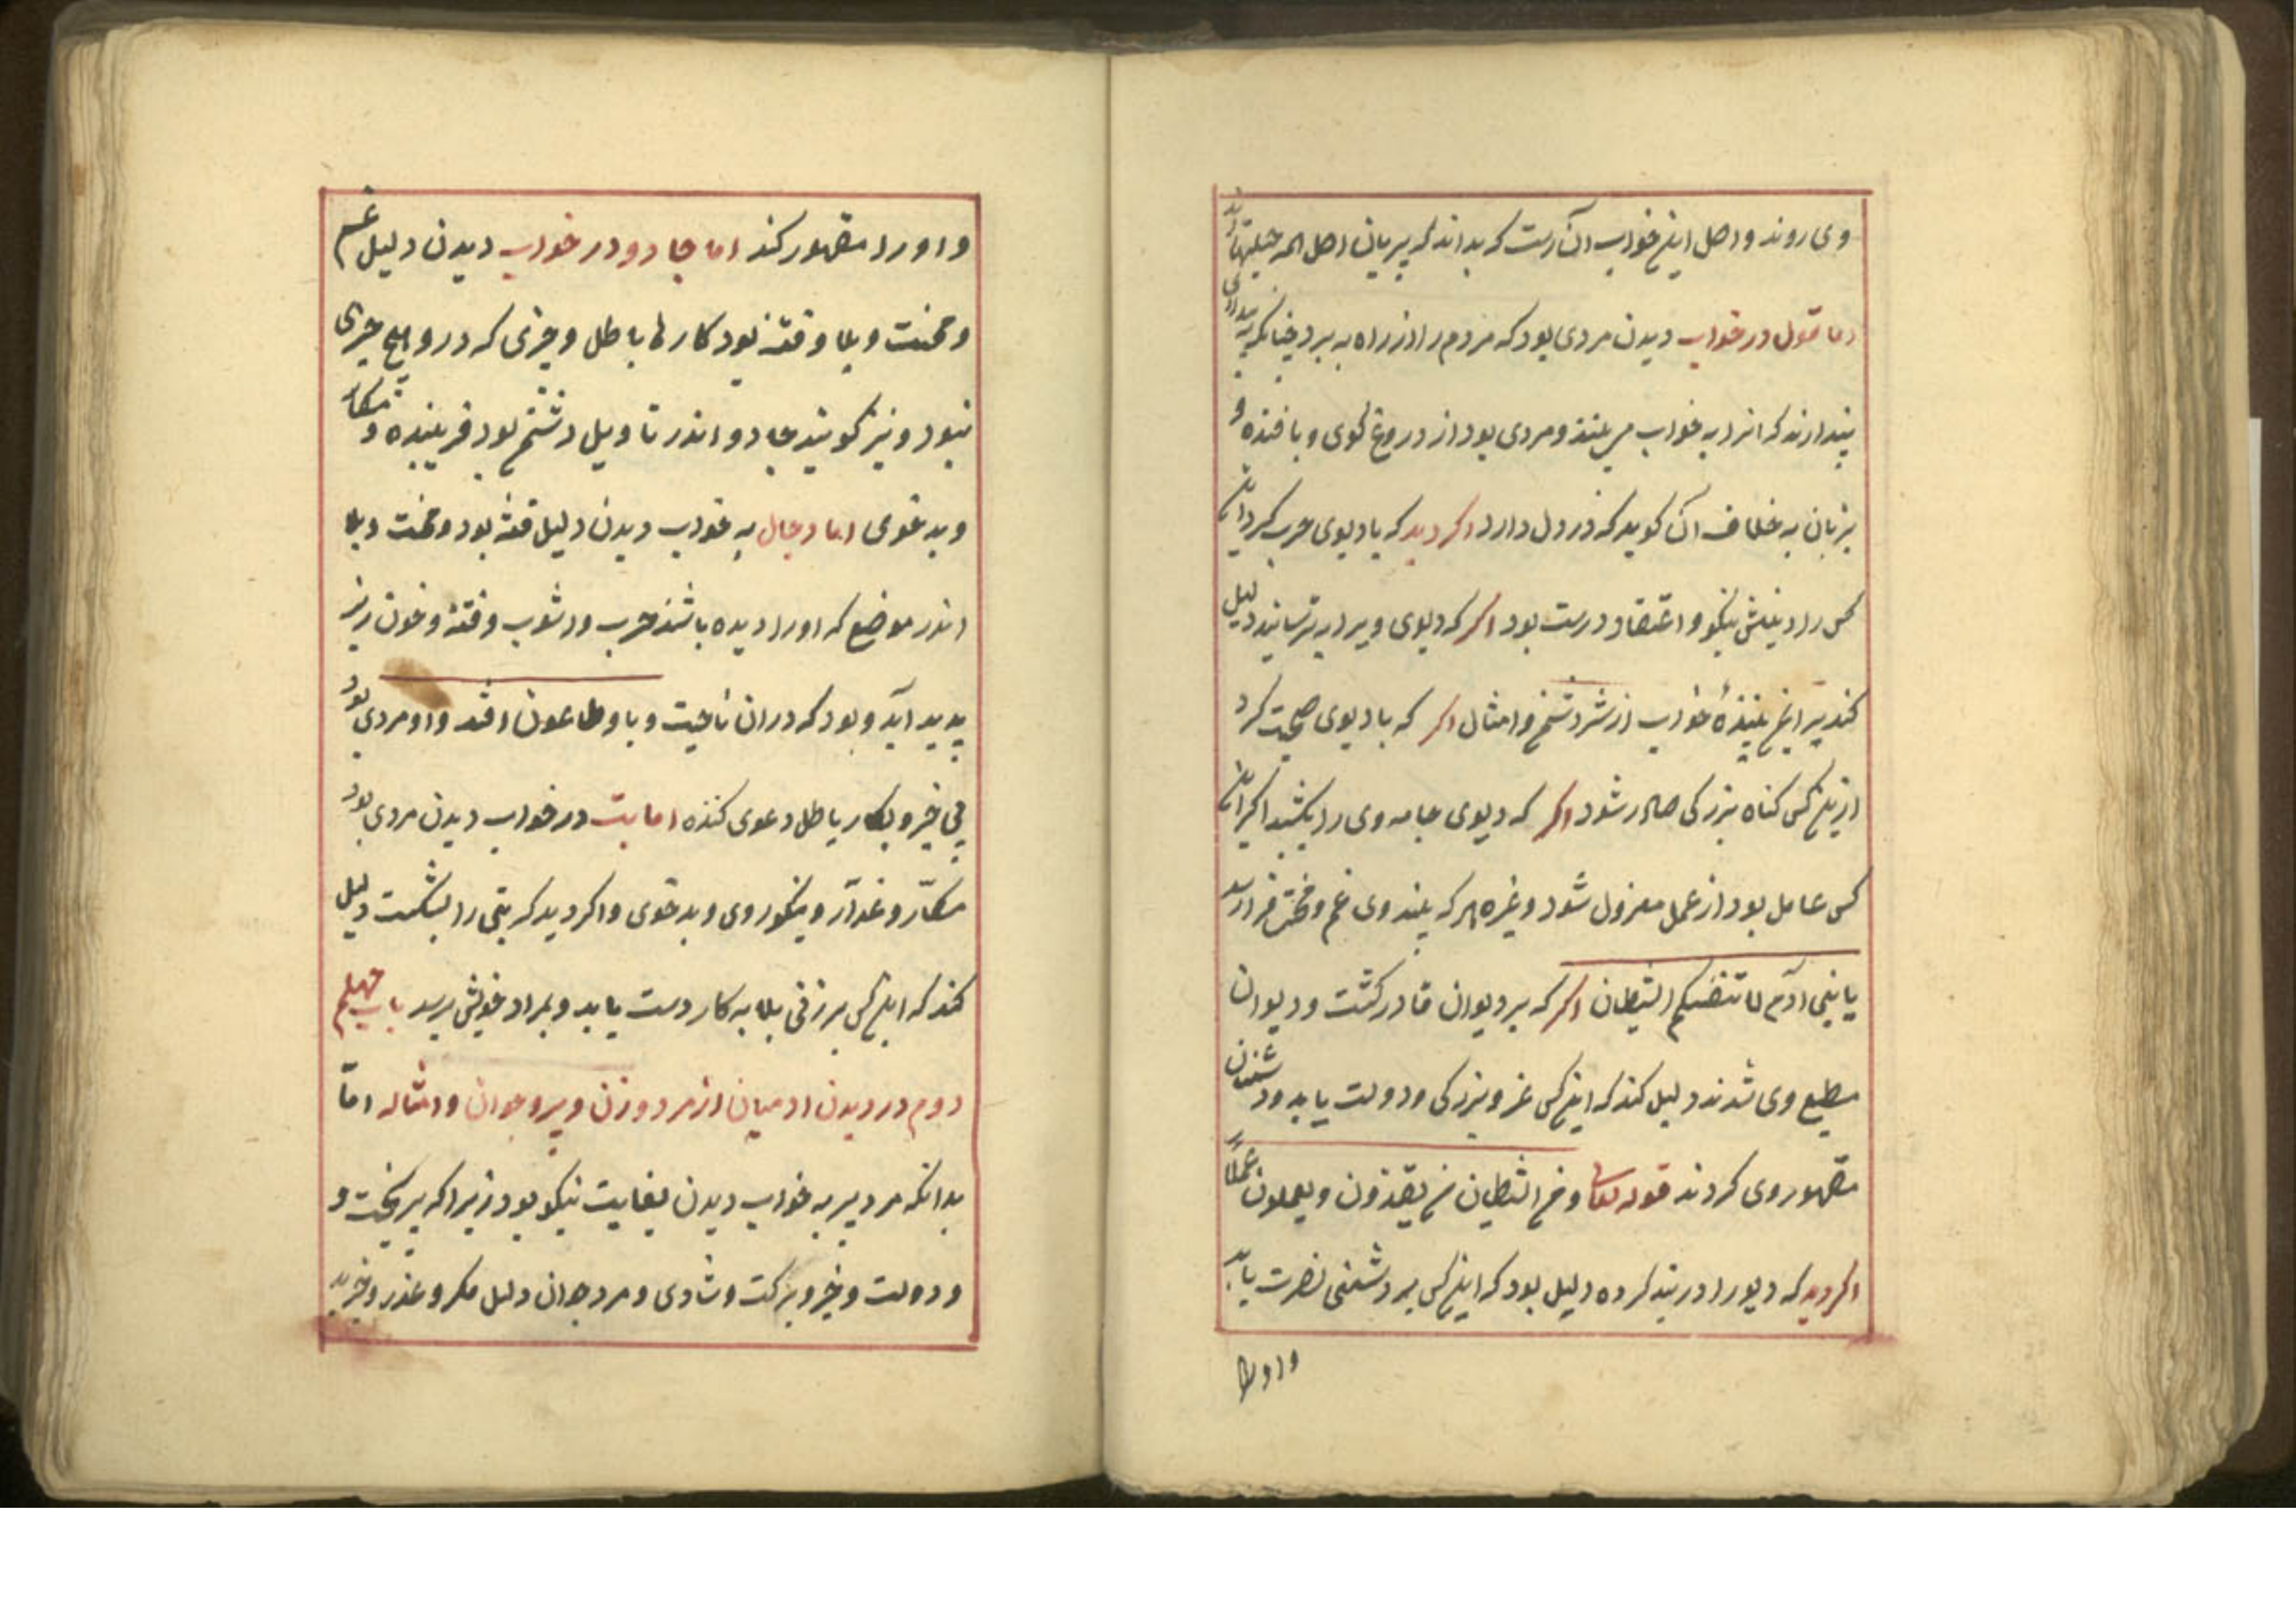 وی روند و اصل این خواب آن است که بداند که پریان اصل همه حیلتها اند
اما غول در خواب دیدن مردی بود که مردم را از راه به برد چنانکه بیداری
پندارند که انرا به خواب می بینند و مردی بود از دروغ گوی و بافنده و
بزبان به خلاف آن کوید که در دل دارد اکر دید که با دیوی حرب کرد این
کس را دینش نیکو و اعتقاد درست بود اکر که دیوی ویرا به ترسانید دلیل
کند بر این بینندهٔ خواب از شر دشمن و امثال اکر که با دیوی صحبت کرد
از این کس کناه بزرکی صادر شود اکر که دیوی جامه وی را بکشید اکر این
کس عامل بود از عمل معزول شود و غیره هر که بیند وی غم و محنت فرا رسد
یا بنی آدم لا تفتنکم الشیطان اکر که بر دیوان قادر کشت و دیوان
مطیع وی شدند دلیل کند که این کس عز و بزرکی و دولت یابد و دشمنان
مقهور وی کردند قوله تعالی و من الشیطان من یغوصون و یعملون عملاً
اکر دید که دیو را در بند کرده دلیل بود که این کس بر دشمنی نصرت یابد
و او را
و او را مقهور کند اما جادو در خواب دیدن دلیل غم
و محنت و بلا و فتنه بود کارها باطل و چیزی که در و هیچ چیزی
نبود و نیز کویند جادو اندر تاویل دشمن بود فریبنده و مکار
و بد خوی اما دجال به خواب دیدن دلیل فتنه بود و محنت و بلا
اندر موضع که او را دیده باشند حرب و اشوب و فتنه و خون ریز
پدید آید و بود که در ان ناحیت وبا و طاعون افتد و او مردی بود
بی خیر و بکار باطل دعوی کننده اما بت در خواب دیدن مردی بود
مکّار و غدّار و نیکو روی و بد خوی و اکر دید که بتی را بشکست دلیل
کند که این کس بر زنی بلایه کار دست یابد و بمراد خویش برسد باب چهلم
دوم در دیدن ادمیان از مرد و زن و پیر و جوان و امثاله امّا
بدانکه مرد پیر به خواب دیدن بغایت نیکو بود زیرا که پیر بخت و
و دولت و خیر و برکت و شادی و مرد جوان دلیل مکر و غدر و